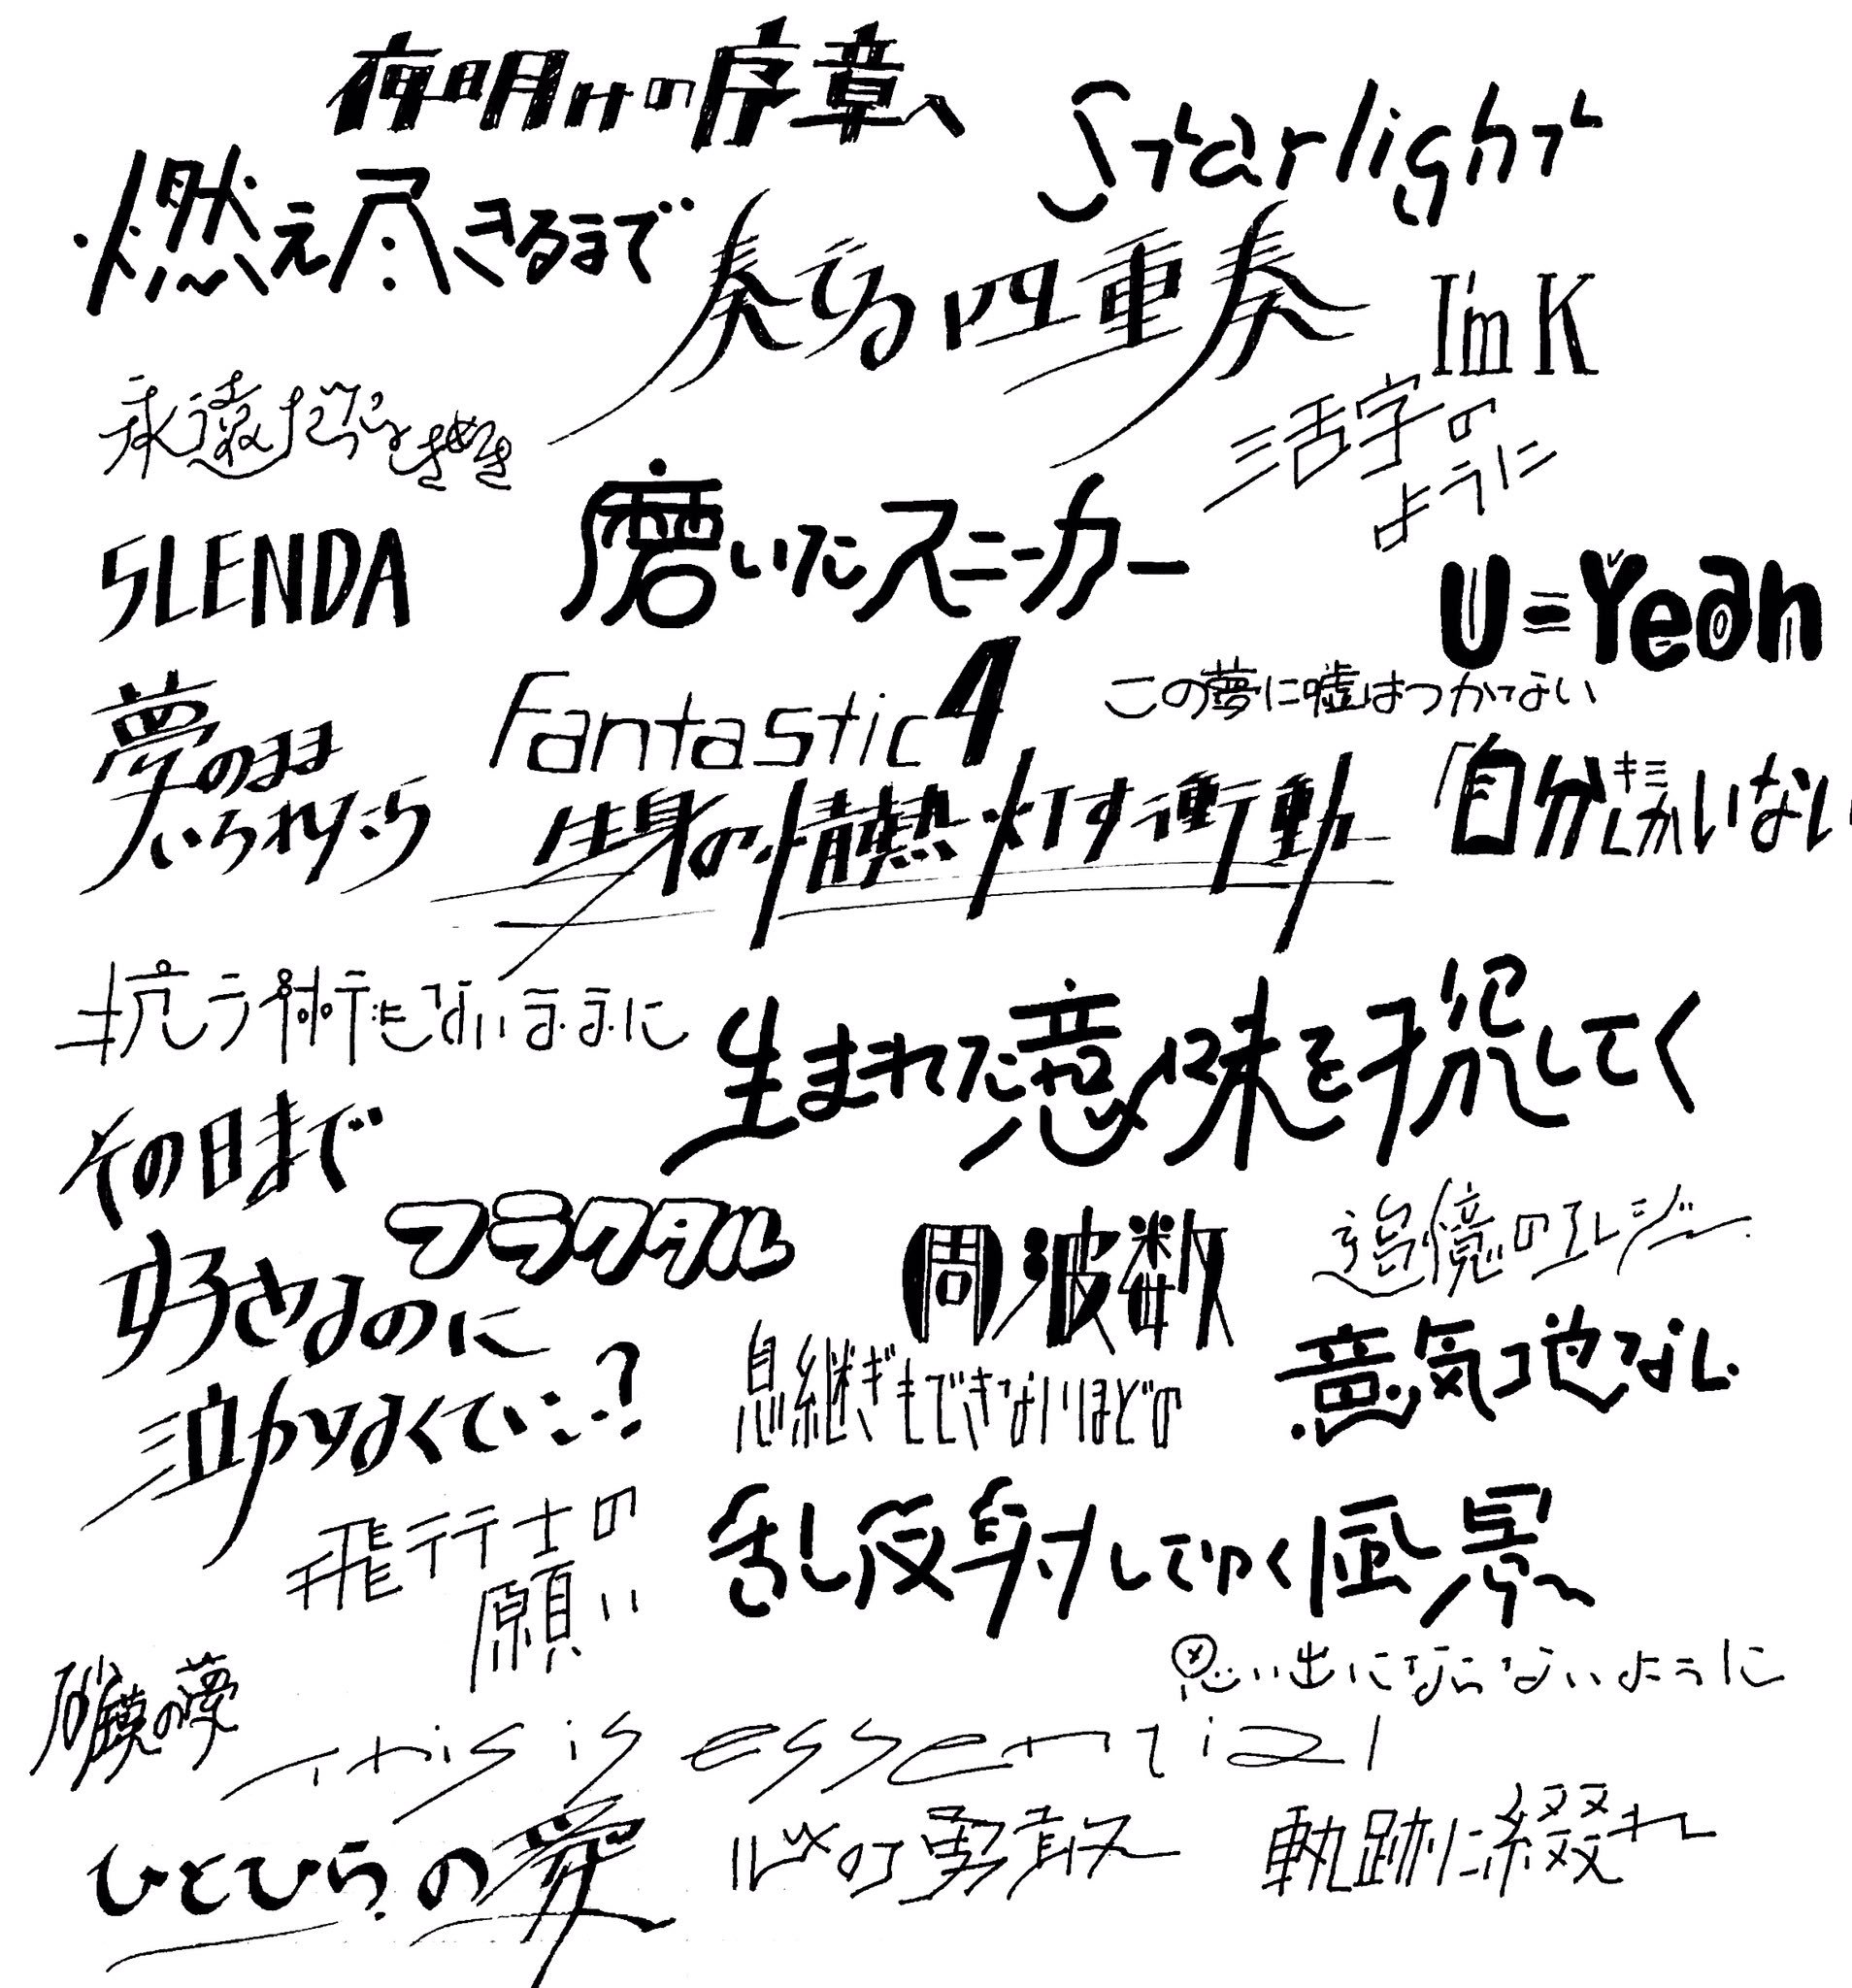 夜明けの序章へ
Starlight
燃え尽きるまで
奏でる四重奏
I'm K
活字の
ように
SLENDA
磨いたスニーカー
U=Yeah
夢のまま
いられたら
Fantastic4
この夢に嘘はつかない
生身の情熱灯す衝動
「自分しかいない
抗う術もないままに
生まれた意味を探してく
その日まで
フラクタル
周波数
追憶のエレジー
好きなのに
泣かなくていい?
息継ぎもできないほどの
意気地なし
飛行士の
願い
乱反射してゆく風景
思い出にならないように
砂漠の夢
This is essential
ひとひらの愛
心の勇敢
軌跡に綴れ